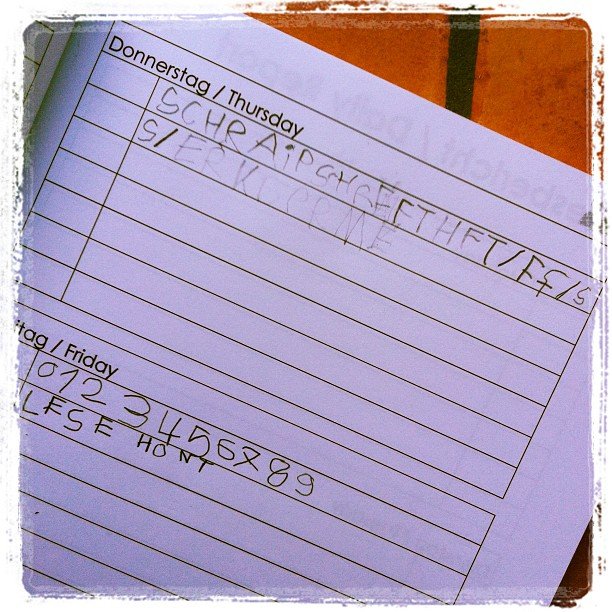 Donnerstag / Thursday
SCHRAiPSCHEFTHFT/FF/S
S/ERKCCCME
tag / Friday
0123456x89
LESE HONT